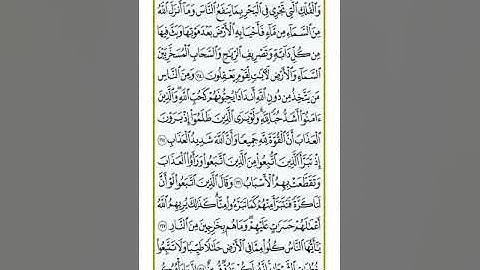 وَٱلْفُلْكِ ٱلَّتِى تَجْرِى فِى ٱلْبَحْرِ بِمَا يَنفَعُ ٱلنَّاسَ وَمَآ أَنزَلَ ٱللَّهُ
مِنَ ٱلسَّمَآءِ مِن مَّآءٍ فَأَحْيَا بِهِ ٱلْأَرْضَ بَعْدَ مَوْتِهَا وَبَثَّ فِيهَا
مِن كُلِّ دَآبَّةٍ وَتَصْرِيفِ ٱلرِّيَٰحِ وَٱلسَّحَابِ ٱلْمُسَخَّرِ بَيْنَ
ٱلسَّمَآءِ وَٱلْأَرْضِ لَءَايَٰتٍ لِّقَوْمٍ يَعْقِلُونَ ١٦٤ وَمِنَ ٱلنَّاسِ
مَن يَتَّخِذُ مِن دُونِ ٱللَّهِ أَندَادًا يُحِبُّونَهُمْ كَحُبِّ ٱللَّهِ وَٱلَّذِينَ
ءَامَنُوٓا۟ أَشَدُّ حُبًّا لِّلَّهِ وَلَوْ يَرَى ٱلَّذِينَ ظَلَمُوٓا۟ إِذْ يَرَوْنَ
ٱلْعَذَابَ أَنَّ ٱلْقُوَّةَ لِلَّهِ جَمِيعًا وَأَنَّ ٱللَّهَ شَدِيدُ ٱلْعَذَابِ ١٦٥
إِذْ تَبَرَّأَ ٱلَّذِينَ ٱتُّبِعُوا۟ مِنَ ٱلَّذِينَ ٱتَّبَعُوا۟ وَرَأَوُا۟ ٱلْعَذَابَ
وَتَقَطَّعَتْ بِهِمُ ٱلْأَسْبَابُ ١٦٦ وَقَالَ ٱلَّذِينَ ٱتَّبَعُوا۟ لَوْ أَنَّ
لَنَا كَرَّةً فَنَتَبَرَّأَ مِنْهُمْ كَمَا تَبَرَّءُوا۟ مِنَّا كَذَٰلِكَ يُرِيهِمُ ٱللَّهُ
أَعْمَٰلَهُمْ حَسَرَٰتٍ عَلَيْهِمْ وَمَا هُم بِخَٰرِجِينَ مِنَ ٱلنَّارِ ١٦٧
يَٰٓأَيُّهَا ٱلنَّاسُ كُلُوا۟ مِمَّا فِى ٱلْأَرْضِ حَلَٰلًا طَيِّبًا وَلَا تَتَّبِعُوا۟